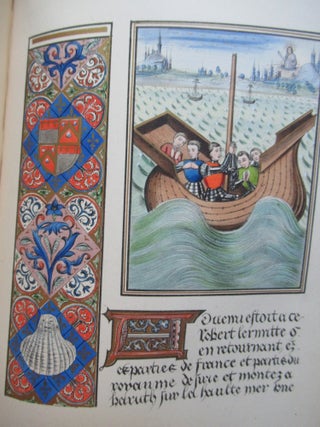 Aduenu estoit a ce
Robert lermitte
en retournant es
parties de france et parties du
royaume de sirie et montez a
baruth sur la haulte mer une